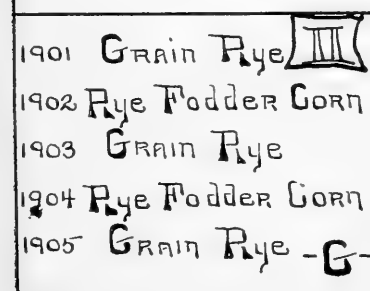 1901 Grain Rye III
1902 Rye Fodder Corn
1903 Grain Rye
1904 Rye Fodder Corn
1905 Grain Rye -G-